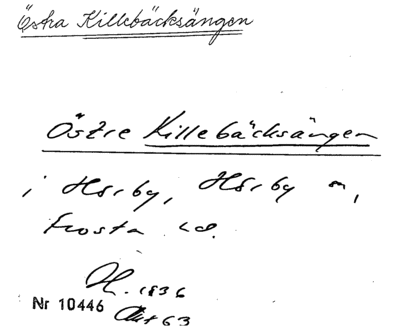 Östra Killebäcksängen
Östre Killebäcksängen
i Hörby, Hörby sn,
Frosta hd.
1836
Nr 10446 Akt 63